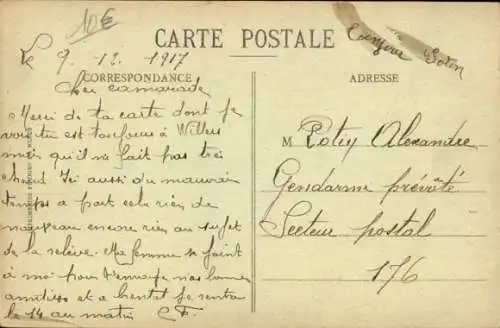 10€
CARTE POSTALE
Le 9.12.1917
CORRESPONDANCE
ADRESSE
Cher camarade
Merci de ta carte dont je
vois tu est toujours à Willers
mais qu'il ne fait pas très
chaud. Ici aussi du mauvais
temps a part cela rien de
nouveau encore rien au sujet
de la relève. Ma femme se joint
à moi pour t'envoyer nos bonnes
amitiées et a bientot je rentre
le 14 au matin
M Potey Alexandre
Gendarme prévôté
Secteur postal
176